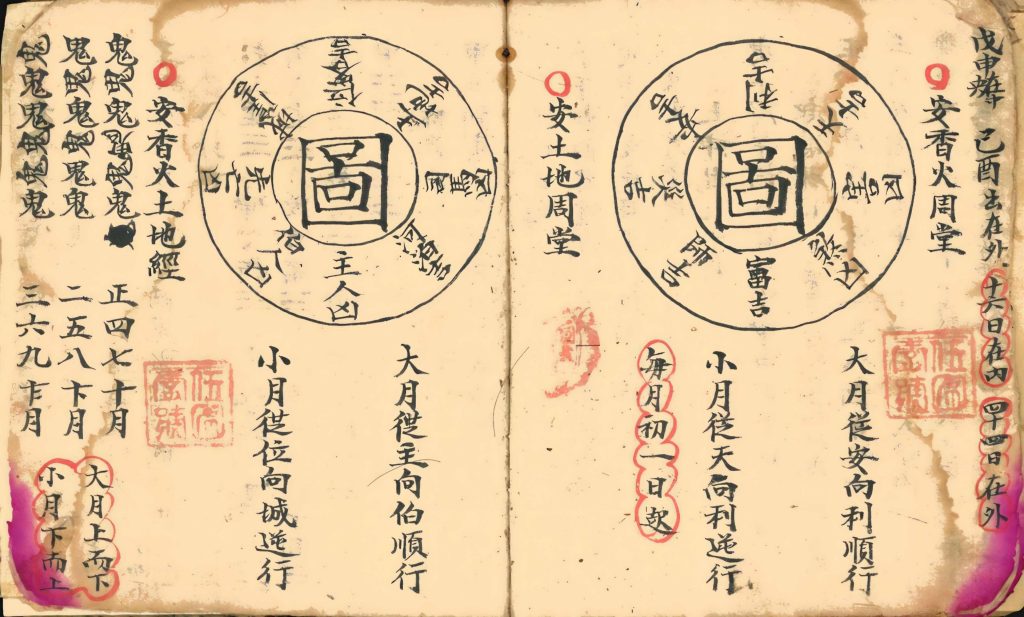 戊申 己酉出在外 十六日在內 四十四日在外
安香火周堂
圖
利吉
天吉
煞凶
富吉
師吉
安吉
大月從安向利順行
小月從天向利逆行
每月初一日起
安土地周堂
圖
主人凶
大月從主向伯順行
小月從位向城逆行
安香火土地經
鬼鬼鬼鬼鬼鬼 正四七十月
鬼鬼鬼鬼鬼鬼 二五八十一月
鬼鬼鬼鬼鬼鬼 三六九十二月
大月上而下
小月下而上